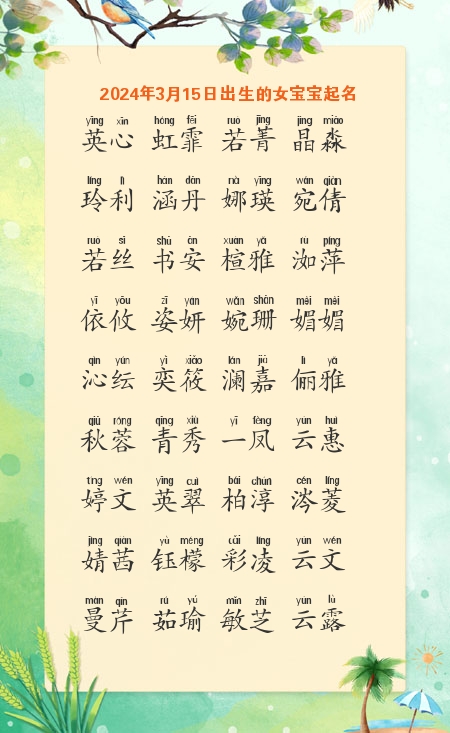 2024年3月15日出生的女宝宝起名
yīng xīn hóng fēi ruò jīng jīng miǎo
英心 虹霏 若菁 晶淼
líng lì hán dān nà yīng wǎn qiàn
玲利 涵丹 娜瑛 宛倩
ruò sī shū ān xuān yǎ rù píng
若丝 书安 楦雅 洳萍
yī yōu zī yán wǎn shān mèi mèi
依攸 姿妍 婉珊 媚媚
qìn yún yì xiǎo lán jiā lì yǎ
沁纭 奕筱 澜嘉 俪雅
qiū róng qīng xiù yī fèng yún huì
秋蓉 青秀 一凤 云惠
tíng wén yīng cuì bǎi chún cén líng
婷文 英翠 柏淳 涔菱
jìng qiàn yù méng cǎi líng yún wén
婧茜 钰檬 彩凌 云文
màn qín rú yú mǐn zhī yún lù
曼芹 茹瑜 敏芝 云露